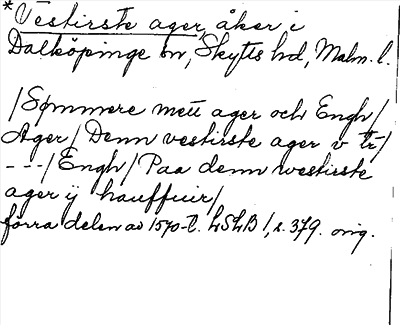 *Vestirste ager, åker i
Dalköpinge sn, Skytts hd, Malm. l.
/Sømmere mett ager och Engh/
Ager/ Denn vestirste ager v tr/
---/ Engh/ Paa denn westirste
ager ij hauffuir/
förra delen av 1570-t. LSLB 1, s. 379. orig.